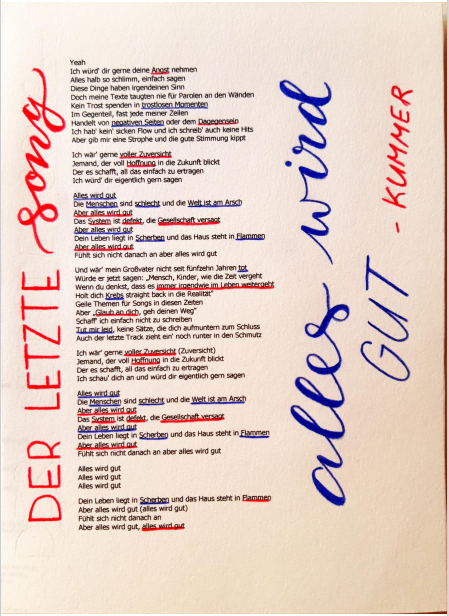 DER LETZTE song
Yeah
Ich würd' dir gerne deine Angst nehmen
Alles halb so schlimm, einfach sagen
Diese Dinge haben irgendeinen Sinn
Doch meine Texte taugten nie für Parolen an den Wänden
Kein Trost spenden in trostlosen Momenten
Im Gegenteil, fast jede meiner Zeilen
Handelt von negativen Seiten oder dem Dagegensein
Ich hab' kein' sicken Flow und ich schreib' auch keine Hits
Aber gib mir eine Strophe und die gute Stimmung kippt
Ich wär' gerne voller Zuversicht
Jemand, der voll Hoffnung in die Zukunft blickt
Der es schafft, all das einfach zu ertragen
Ich würd' dir eigentlich gern sagen
Alles wird gut
Die Menschen sind schlecht und die Welt ist am Arsch
Aber alles wird gut
Das System ist defekt, die Gesellschaft versagt
Aber alles wird gut
Dein Leben liegt in Scherben und das Haus steht in Flammen
Aber alles wird gut
Fühlt sich nicht danach an aber alles wird gut
Und wär' mein Großvater nicht seit fünfzehn Jahren tot
Würde er jetzt sagen: „Mensch, Kinder, wie die Zeit vergeht
Wenn du denkst, dass es immer irgendwie im Leben weitergeht
Holt dich Krebs straight back in die Realität"
Geile Themen für Songs in diesen Zeiten
Aber „Glaub an dich, geh deinen Weg"
Schaff' ich einfach nicht zu schreiben
Tut mir leid, keine Sätze, die dich aufmuntern zum Schluss
Auch der letzte Track zieht ein' noch runter in den Schmutz
Ich wär' gerne voller Zuversicht (Zuversicht)
Jemand, der voll Hoffnung in die Zukunft blickt
Der es schafft, all das einfach zu ertragen
Ich schau' dich an und würd dir eigentlich gern sagen
Alles wird gut
Die Menschen sind schlecht und die Welt ist am Arsch
Aber alles wird gut
Das System ist defekt, die Gesellschaft versagt
Aber alles wird gut
Dein Leben liegt in Scherben und das Haus steht in Flammen
Aber alles wird gut
Fühlt sich nicht danach an aber alles wird gut
Alles wird gut
Alles wird gut
Alles wird gut
Dein Leben liegt in Scherben und das Haus steht in Flammen
Aber alles wird gut (alles wird gut)
Fühlt sich nicht danach an
Aber alles wird gut, alles wird gut
alles wird
GUT - KUMMER